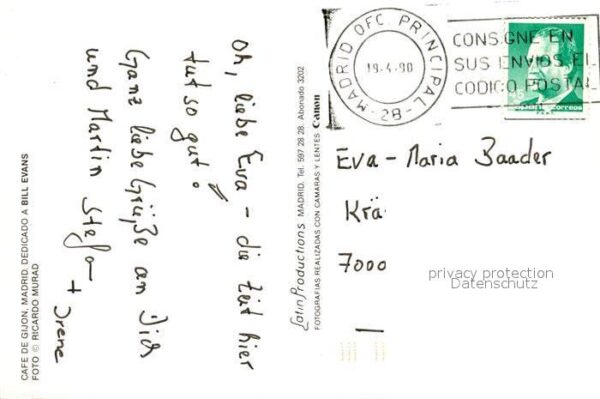 Oh, liebe Eva - die Zeit hier
tut so gut!
Ganz liebe Grüße an Dich
und Martin Stefan
+ Irene
CAFE DE GIJON, MADRID, DEDICADO A BILL EVANS
FOTO © RICARDO MURAD
Latin Productions MADRID. Tel. 597 28 28. Abonado 3202
FOTOGRAFIAS REALIZADAS CON CAMARAS Y LENTES Canon
MADRID OFC. PRINCIPAL
19-4-90
-28-
CONSIGNE EN
SUS ENVIOS EL
CODIGO POSTAL
correos
Eva-Maria Baader
Krä
7000
privacy protection
Datenschutz